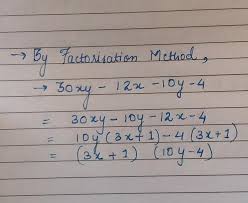 → By Factorisation Method,
→ 30xy - 12x - 10y - 4
= 30xy - 10y - 12x - 4
= 10y (3x + 1) - 4 (3x + 1)
= (3x + 1) (10y - 4)